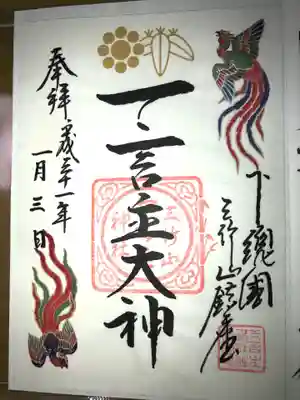 下総國
三竹山鎮座
一言主大神
奉拝 平成三十一年
一月三日